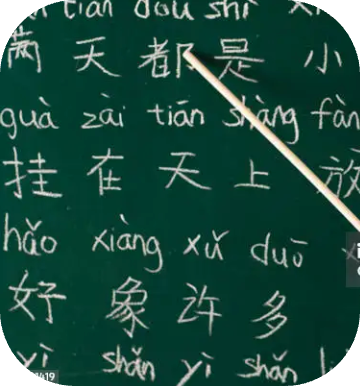 tiān dōu shì
满 天 都 是 小
guà zài tiān shàng fàng
挂 在 天 上 放
hǎo xiàng xǔ duō
好 象 许 多
yì shǎn yì shǎn